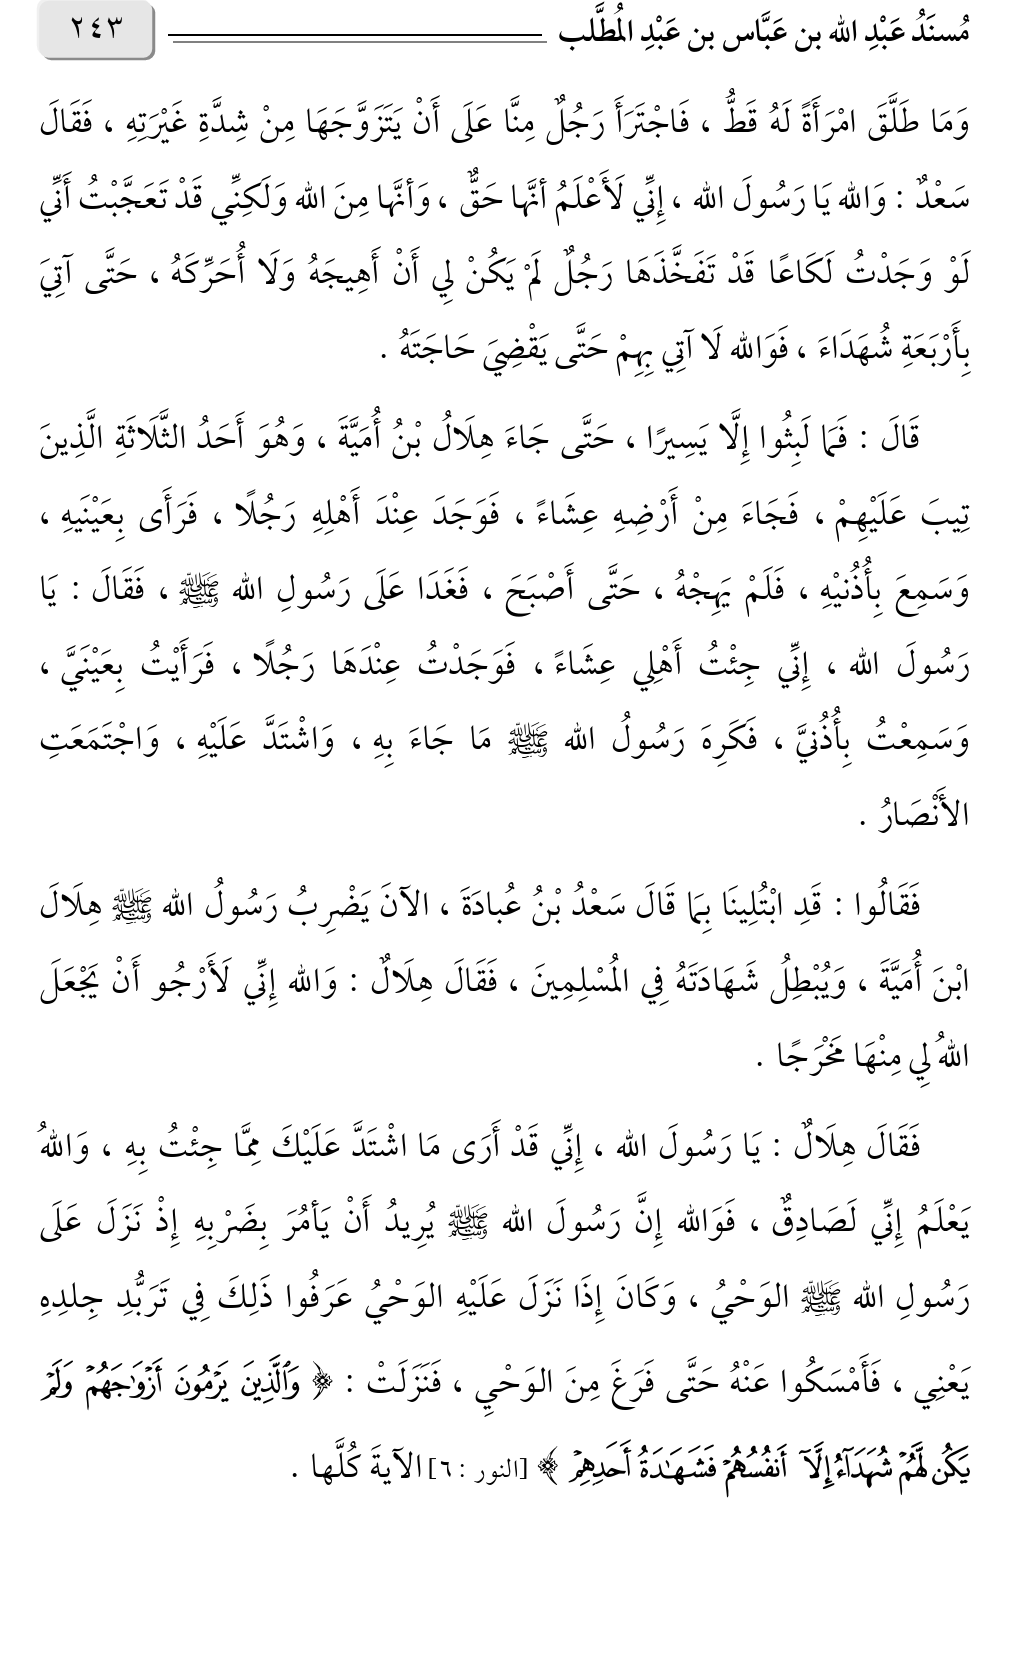 مُسنَدُ عَبْدِ الله بن عَبَّاس بن عَبْدِ المُطَّلب ٢٤٣
وَمَا طَلَّقَ امْرَأَةً لَهُ قَطُّ ، فَاجْتَرَأَ رَجُلٌ مِنَّا عَلَى أَنْ يَتَزَوَّجَهَا مِنْ شِدَّةِ غَيْرَتِهِ ، فَقَالَ
سَعْدٌ : وَالله يَا رَسُولَ الله ، إِنِّي لَأَعْلَمُ أنَّها حَقٌّ ، وَأنَّها مِنَ الله وَلَكِنِّي قَدْ تَعَجَّبْتُ أَنِّي
لَوْ وَجَدْتُ لَكَاعًا قَدْ تَفَخَّذَهَا رَجُلٌ لَمْ يَكُنْ لِي أَنْ أَهِيجَهُ وَلَا أُحَرِّكَهُ ، حَتَّى آتِيَ
بِأَرْبَعَةِ شُهَدَاءَ ، فَوَالله لَا آتِي بِهِمْ حَتَّى يَقْضِيَ حَاجَتَهُ .
قَالَ : فَمَا لَبِثُوا إِلَّا يَسِيرًا ، حَتَّى جَاءَ هِلَالُ بْنُ أُمَيَّةَ ، وَهُوَ أَحَدُ الثَّلَاثَةِ الَّذِينَ
تِيبَ عَلَيْهِمْ ، فَجَاءَ مِنْ أَرْضِهِ عِشَاءً ، فَوَجَدَ عِنْدَ أَهْلِهِ رَجُلًا ، فَرَأَى بِعَيْنَيهِ ،
وَسَمِعَ بِأُذُنيْهِ ، فَلَمْ يَهِجْهُ ، حَتَّى أَصْبَحَ ، فَغَدَا عَلَى رَسُولِ الله ﷺ ، فَقَالَ : يَا
رَسُولَ الله ، إِنِّي جِئْتُ أَهْلِي عِشَاءً ، فَوَجَدْتُ عِنْدَهَا رَجُلًا ، فَرَأَيْتُ بِعَيْنَيَّ ،
وَسَمِعْتُ بِأُذُنيَّ ، فَكَرِهَ رَسُولُ الله ﷺ مَا جَاءَ بِهِ ، وَاشْتَدَّ عَلَيْهِ ، وَاجْتَمَعَتِ
الأَنْصَارُ .
فَقَالُوا : قَدِ ابْتُلِينَا بِمَا قَالَ سَعْدُ بْنُ عُبادَةَ ، الآنَ يَضْرِبُ رَسُولُ الله ﷺ هِلَالَ
ابْنَ أُمَيَّةَ ، وَيُبْطِلُ شَهَادَتَهُ فِي المُسْلِمِينَ ، فَقَالَ هِلَالٌ : وَالله إِنِّي لَأَرْجُو أَنْ يَجْعَلَ
اللهُ لِي مِنْهَا مَخْرَجًا .
فَقَالَ هِلَالٌ : يَا رَسُولَ الله ، إِنِّي قَدْ أَرَى مَا اشْتَدَّ عَلَيْكَ مِمَّا جِئْتُ بِهِ ، وَاللهُ
يَعْلَمُ إِنِّي لَصَادِقٌ ، فَوَالله إِنَّ رَسُولَ الله ﷺ يُرِيدُ أَنْ يَأمُرَ بِضَرْبِهِ إِذْ نَزَلَ عَلَى
رَسُولِ الله ﷺ الوَحْيُ ، وَكَانَ إِذَا نَزَلَ عَلَيْهِ الوَحْيُ عَرَفُوا ذَلِكَ فِي تَرَبُّدِ جِلدِهِ
يَعْنِي ، فَأَمْسَكُوا عَنْهُ حَتَّى فَرَغَ مِنَ الوَحْيِ ، فَنَزَلَتْ : ﴿ وَٱلَّذِينَ يَرْمُونَ أَزْوَٰجَهُمْ وَلَمْ
يَكُن لَّهُمْ شُهَدَآءُ إِلَّآ أَنفُسُهُمْ فَشَهَـٰدَةُ أَحَدِهِمْ ﴾ [النور : ٦] الآيةَ كُلَّها .